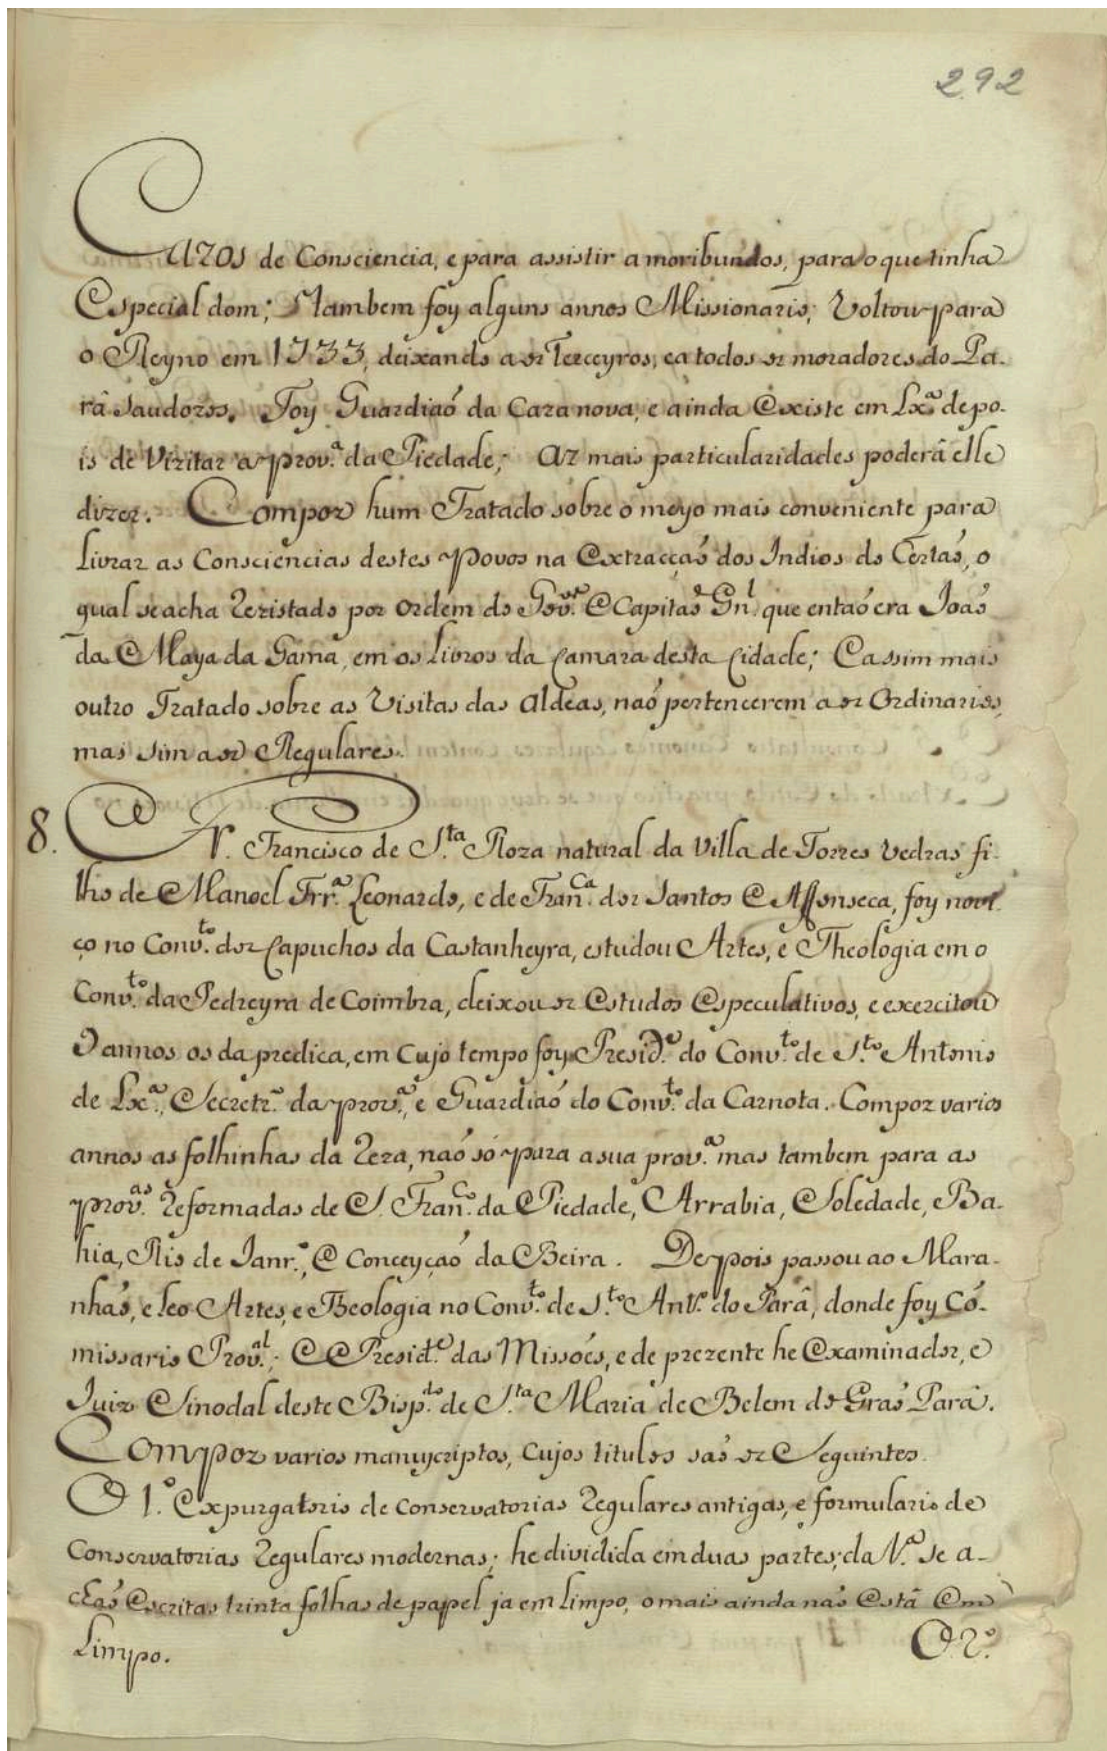 292
Cazos de Consciencia, e para assistir a moribundos, para o que tinha
Especial dom; Tambem foy alguns annos Missionario; Voltou para
o Reyno em 1733, deixando a os Terceyros, e a todos os moradores do Pa-
râ Saudozos. Foy Guardiaõ da Caza nova, e ainda Existe em Lxª depo-
is de Vizitar a provª da Piedade; As mais particularidades poderâ elle
dizer. Compoz hum Tratado sobre o meyo mais conveniente para
Livrar as Consciencias destes Povos na Extracçaõ dos Indios do Certaõ, o
qual se acha Rezistado por Ordem do Govor E Capitaõ Gnl que entaõ era Joaõ
da Maya da Gama, em os Livros da Camara desta Cidade; E assim mais
outro Tratado sobre as Visitas das Aldeas, naõ pertencerem a os Ordinarios,
mas sim a os Regulares.
8. Fr. Francisco de Sta Roza natural da Villa de Torres Vedras fi-
lho de Manoel Frrª Leonardo, e de Franca dos Santos E Affonseca, foy novi-
ço no Convto dos Capuchos da Castanheyra, estudou Artes, e Theologia em o
Convto da Pedreyra de Coimbra, deixou os Estudos Especulativos, e exercitou
9 annos os da predica, em Cujo tempo foy Preside do Convto de Sto Antonio
de Lxª, Secretrº da provª, e Guardiaõ do Convto da Carnota. Compoz varios
annos as folhinhas da Reza, naõ só para a sua provª mas tambem para as
provas Reformadas de S. Franco da Piedade, Arrabia, Soledade, Ba-
hia, Rio de Janrº, E Conceyçaõ da Beira. Depois passou ao Mara-
nhaõ, e leo Artes, e Theologia no Convto de Sto Antº do Parâ, donde foy Cõ-
missario Proval; E Preside das Missoẽs, e de prezente he Examinador, e
Juiz Sinodal deste Bispdo de Sta Maria de Belem do Graõ Parâ.
Compoz varios manuscriptos, Cujos titulos saõ os Seguintes.
O 1º Expurgatorio de Conservatorias Regulares antigas, e formulario de
Conservatorias Regulares modernas; he dividida em duas partes; da 1ª se a-
chaõ Escritas trinta folhas de papel ja em Limpo, o mais ainda naõ Estâ Em
Limpo.
O 2º